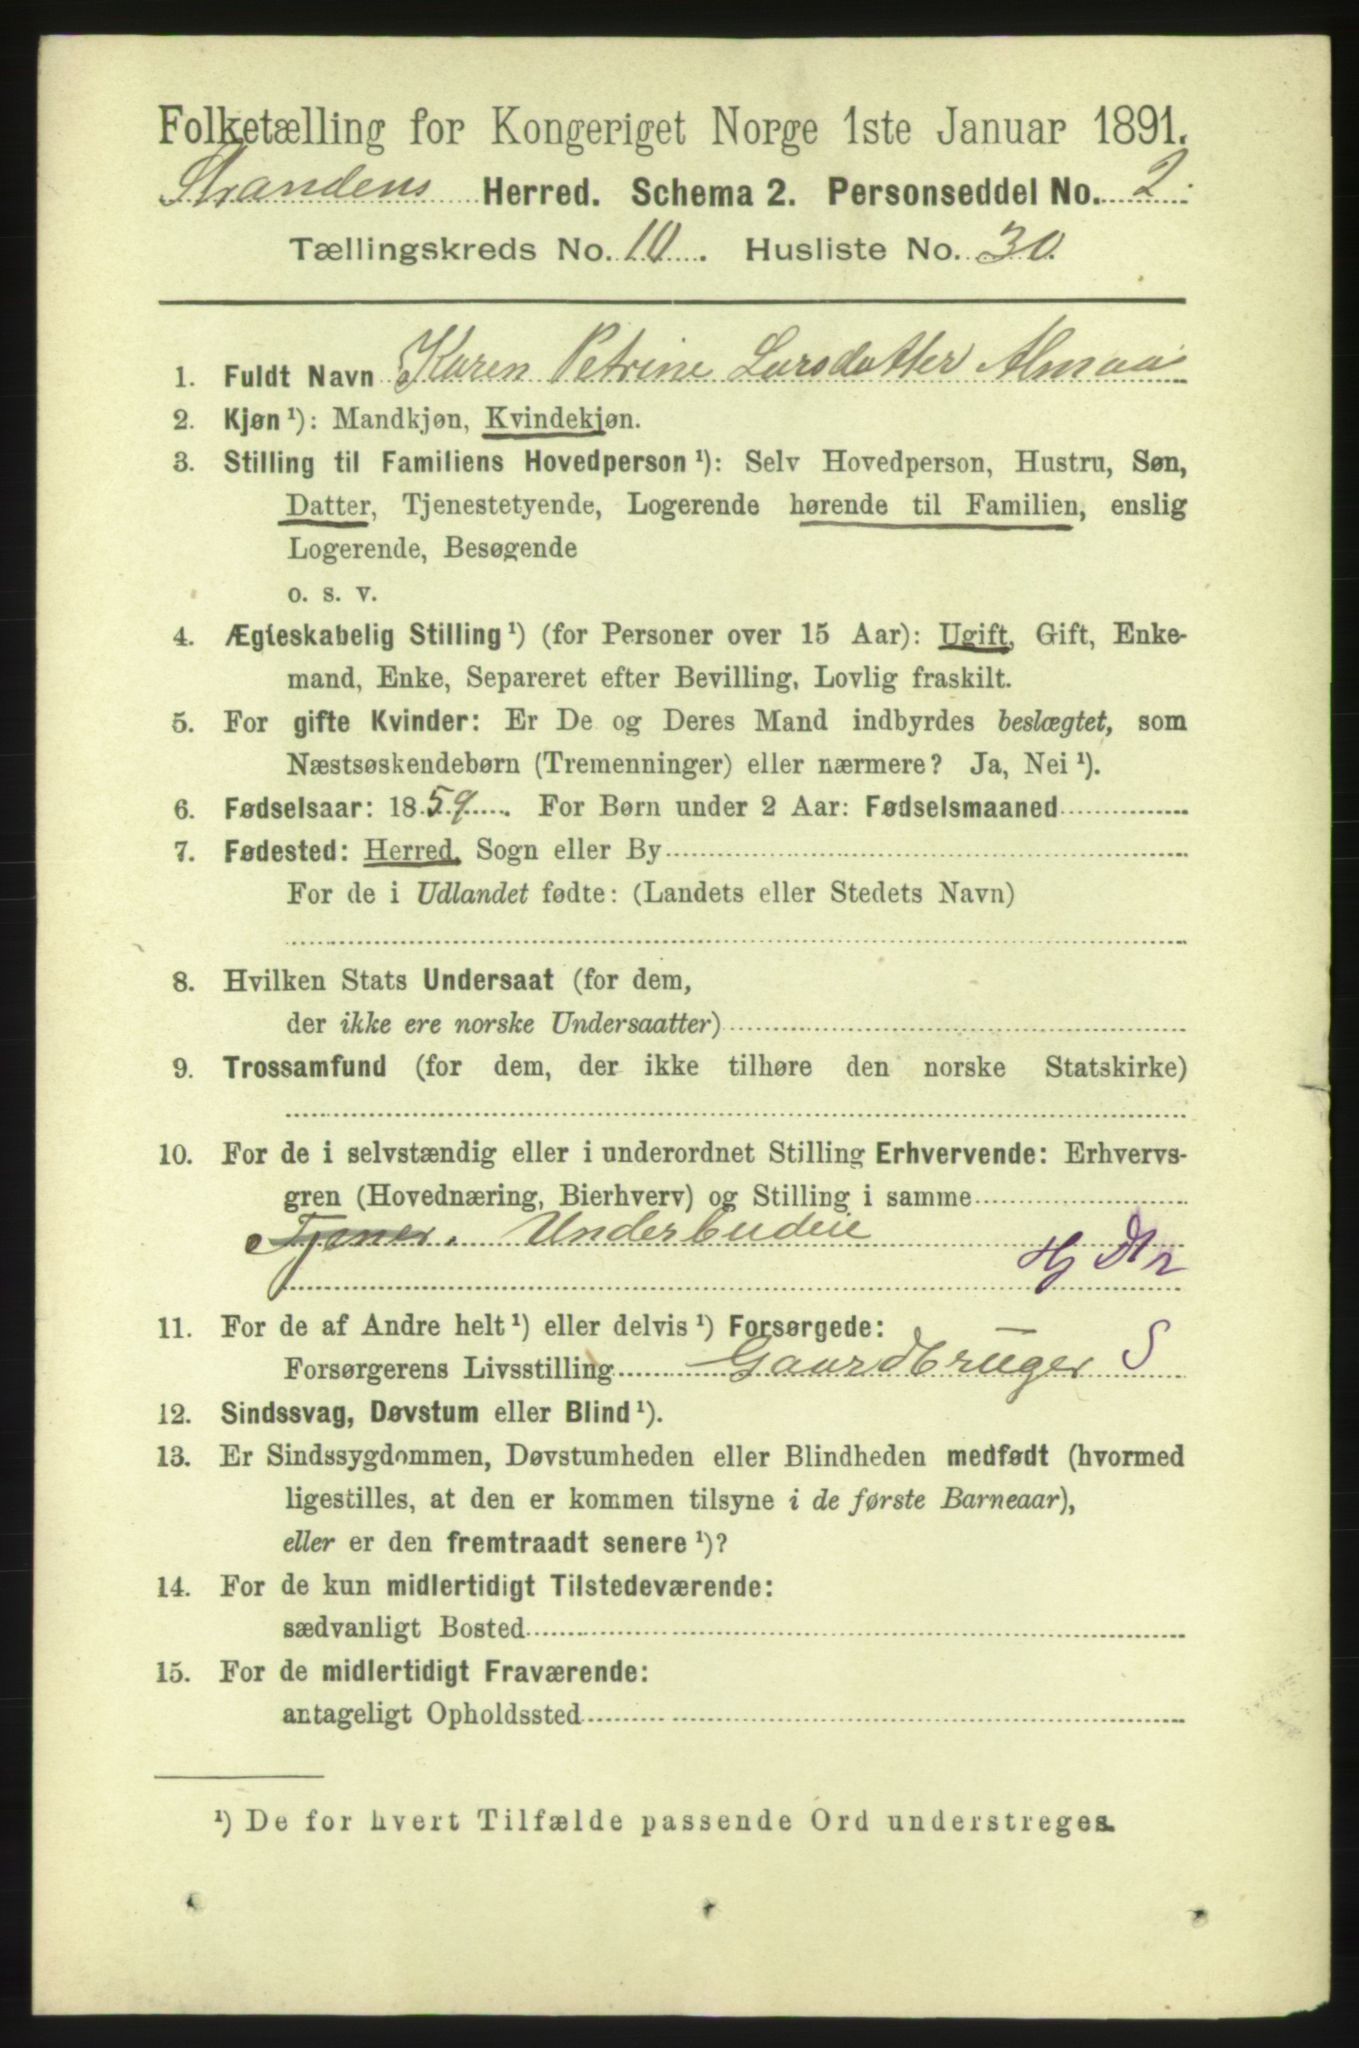 Folketælling for Kongeriget Norge 1ste Januar 1891.
Strandens Herred. Schema 2. Personseddel No. 2.
Tællingskreds No. 10. Husliste No. 30.
1. Fuldt Navn Karen Petrine Larsdatter Almaa
2. Kjøn ¹): Mandkjøn, Kvindekjøn.
3. Stilling til Familiens Hovedperson ¹): Selv Hovedperson, Hustru, Søn,
Datter, Tjenestetyende, Logerende hørende til Familien, enslig
Logerende, Besøgende
o. s. v.
4. Ægteskabelig Stilling ¹) (for Personer over 15 Aar): Ugift, Gift, Enke-
mand, Enke, Separeret efter Bevilling, Lovlig fraskilt.
5. For gifte Kvinder: Er De og Deres Mand indbyrdes beslægtet, som
Næstsøskendebørn (Tremenninger) eller nærmere? Ja, Nei ¹).
6. Fødselsaar: 1859. For Børn under 2 Aar: Fødselsmaaned
7. Fødested: Herred, Sogn eller By
For de i Udlandet fødte: (Landets eller Stedets Navn)
8. Hvilken Stats Undersaat (for dem,
der ikke ere norske Undersaatter)
9. Trossamfund (for dem, der ikke tilhøre den norske Statskirke)
10. For de i selvstændig eller i underordnet Stilling Erhvervende: Erhvervs-
gren (Hovednæring, Bierhverv) og Stilling i samme
Tjener. Underbudeie
Hj Dtr
11. For de af Andre helt ¹) eller delvis ¹) Forsørgede:
Forsørgerens Livsstilling Gaardbruger S
12. Sindssvag, Døvstum eller Blind ¹).
13. Er Sindssygdommen, Døvstumheden eller Blindheden medfødt (hvormed
ligestilles, at den er kommen tilsyne i de første Barneaar),
eller er den fremtraadt senere ¹)?
14. For de kun midlertidigt Tilstedeværende:
sædvanligt Bosted
15. For de midlertidigt Fraværende:
antageligt Opholdssted
¹) De for hvert Tilfælde passende Ord understreges.